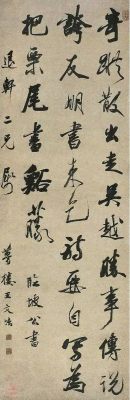 奇蹤散出走吳越勝事傳說
誇友朋書來乞詩要自寫為
把栗尾書谿藤 臨坡公書
退軒二兄
夢樓王文治